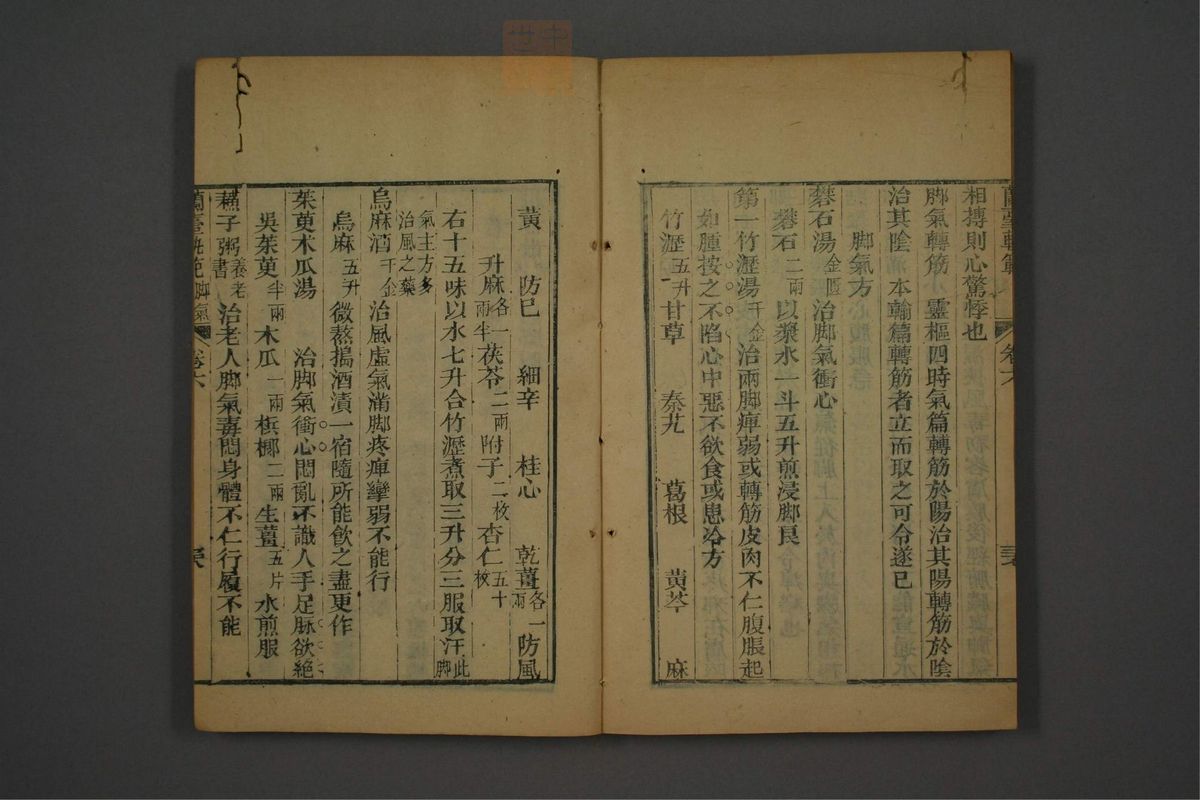 蘭臺軌範 卷六
相搏則心驚悸也
脚氣轉筋 靈樞四時氣篇轉筋於陽治其陽轉筋於陰
治其陰 本輸篇轉筋者立而取之可令遂已
脚氣方
礬石湯 金匱 治脚氣衝心
礬石 二兩 以漿水一斗五升煎浸脚良
第一竹瀝湯 千金 治兩脚痺弱或轉筋皮肉不仁腹脹起
如腫按之不陷心中惡不欲食或患冷方
竹瀝 五升 甘草 秦艽 葛根 黃芩 麻
黃 防已 細辛 桂心 乾薑 各一兩 防風
升麻 各一兩半 茯苓 二兩 附子 二枚 杏仁 五十枚
右十五味以水七升合竹瀝煮取三升分三服取汗 此脚
氣主方多治風之藥
烏麻酒 千金 治風虛氣滿脚疼痺攣弱不能行
烏麻 五升 微熬搗酒漬一宿隨所能飲之盡更作
茱萸木瓜湯 治脚氣衝心悶亂不識人手足脉欲絕
吳茱萸 半兩 木瓜 一兩 檳榔 二兩 生薑 五片 水煎服
蘇子粥 養老書 治老人脚氣毒悶身體不仁行履不能
蘭臺軌範 脚氣 卷六